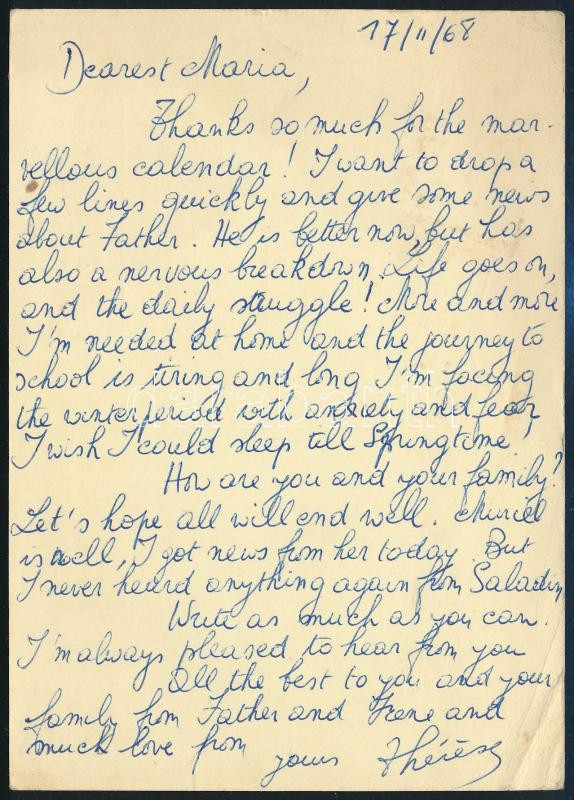 17/11/68
Dearest Maria,
Thanks so much for the mar-
vellous calendar! I want to drop a
few lines quickly and give some news
about Father. He is better now, but has
also a nervous breakdown. Life goes on,
and the daily struggle! More and more
I'm needed at home and the journey to
school is tiring and long. I'm facing
the winterperiod with anxiety and fear,
I wish I could sleep till Springtime!
How are you and your family?
Let's hope all will end well. Muriel
is well, I got news from her today. But
I never heard anything again from Saladin
Write as much as you can.
I'm always pleased to hear from you
All the best to you and your
family from Father and Irene and
much love from
yours Thérèse